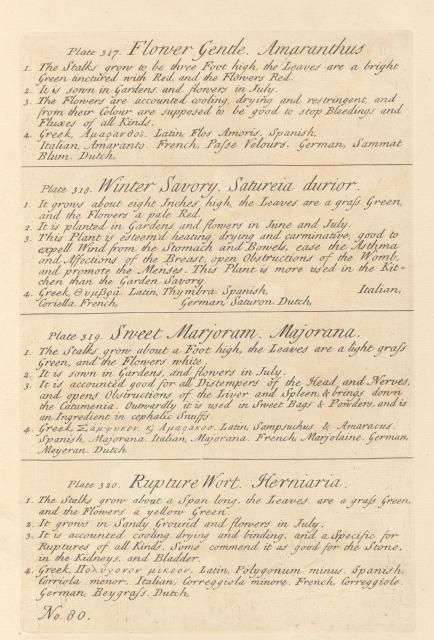 Plate 317. Flower Gentle. Amaranthus
1. The Stalks grow to be three Foot high, the Leaves are a bright
Green tinctured with Red, and the Flowers Red.
2. It is sown in Gardens, and flowers in July.
3. The Flowers are accounted cooling, drying and restringent, and
from their Colour are supposed to be good to stop Bleedings and
Fluxes of all Kinds.
4. Greek, Αμαρανθος. Latin, Flos Amoris. Spanish,
Italian, Amaranto. French, Passe Velours. German, Sammat
Blum. Dutch,
Plate 318. Winter Savory. Satureia durior.
1. It grows about eight Inches high, the Leaves are a grass Green,
and the Flowers a pale Red.
2. It is planted in Gardens and flowers in June and July.
3. This Plant is esteem'd heating, drying and carminative, good to
expell Wind from the Stomach and Bowels, ease the Asthma
and Affections of the Breast, open Obstructions of the Womb,
and promote the Menses. This Plant is more used in the Kit-
chen than the Garden Savory.
4. Greek, Θυμβρα. Latin, Thymbra. Spanish, Italian,
Coriella. French, German Saturon. Dutch,
Plate 319. Sweet Marjoram. Majorana.
1. The Stalks grow about a Foot high, the Leaves are a light grass
Green, and the Flowers white.
2. It is sown in Gardens, and flowers in July.
3. It is accounted good for all Distempers of the Head, and Nerves,
and opens Obstructions of the Liver and Spleen, & brings down
the Catamenia. Outwardly it is used in Sweet Bags & Powders, and is
an Ingredient in cephalic Snuffs.
4. Greek, Σαμψυκον, ϗ Αμαρακος. Latin, Sampsuchus & Amaracus.
Spanish, Majorana. Italian, Majorana. French, Marjolaine. German,
Meyeran. Dutch
Plate 320. Rupture Wort. Herniaria.
1. The Stalks grow about a Span long, the Leaves are a grass Green,
and the Flowers a yellow Green.
2. It grows in Sandy Ground and flowers in July.
3. It is accounted cooling, drying and binding, and a Specific for
Ruptures of all Kinds. Some commend it as good for the Stone,
in the Kidneys, and Bladder.
4. Greek, Πολυγονον μικρον. Latin, Polygonum minus. Spanish,
Corriola menor. Italian, Correggiola minore. French, Correggiole.
German, Beygrass. Dutch,
No. 80.